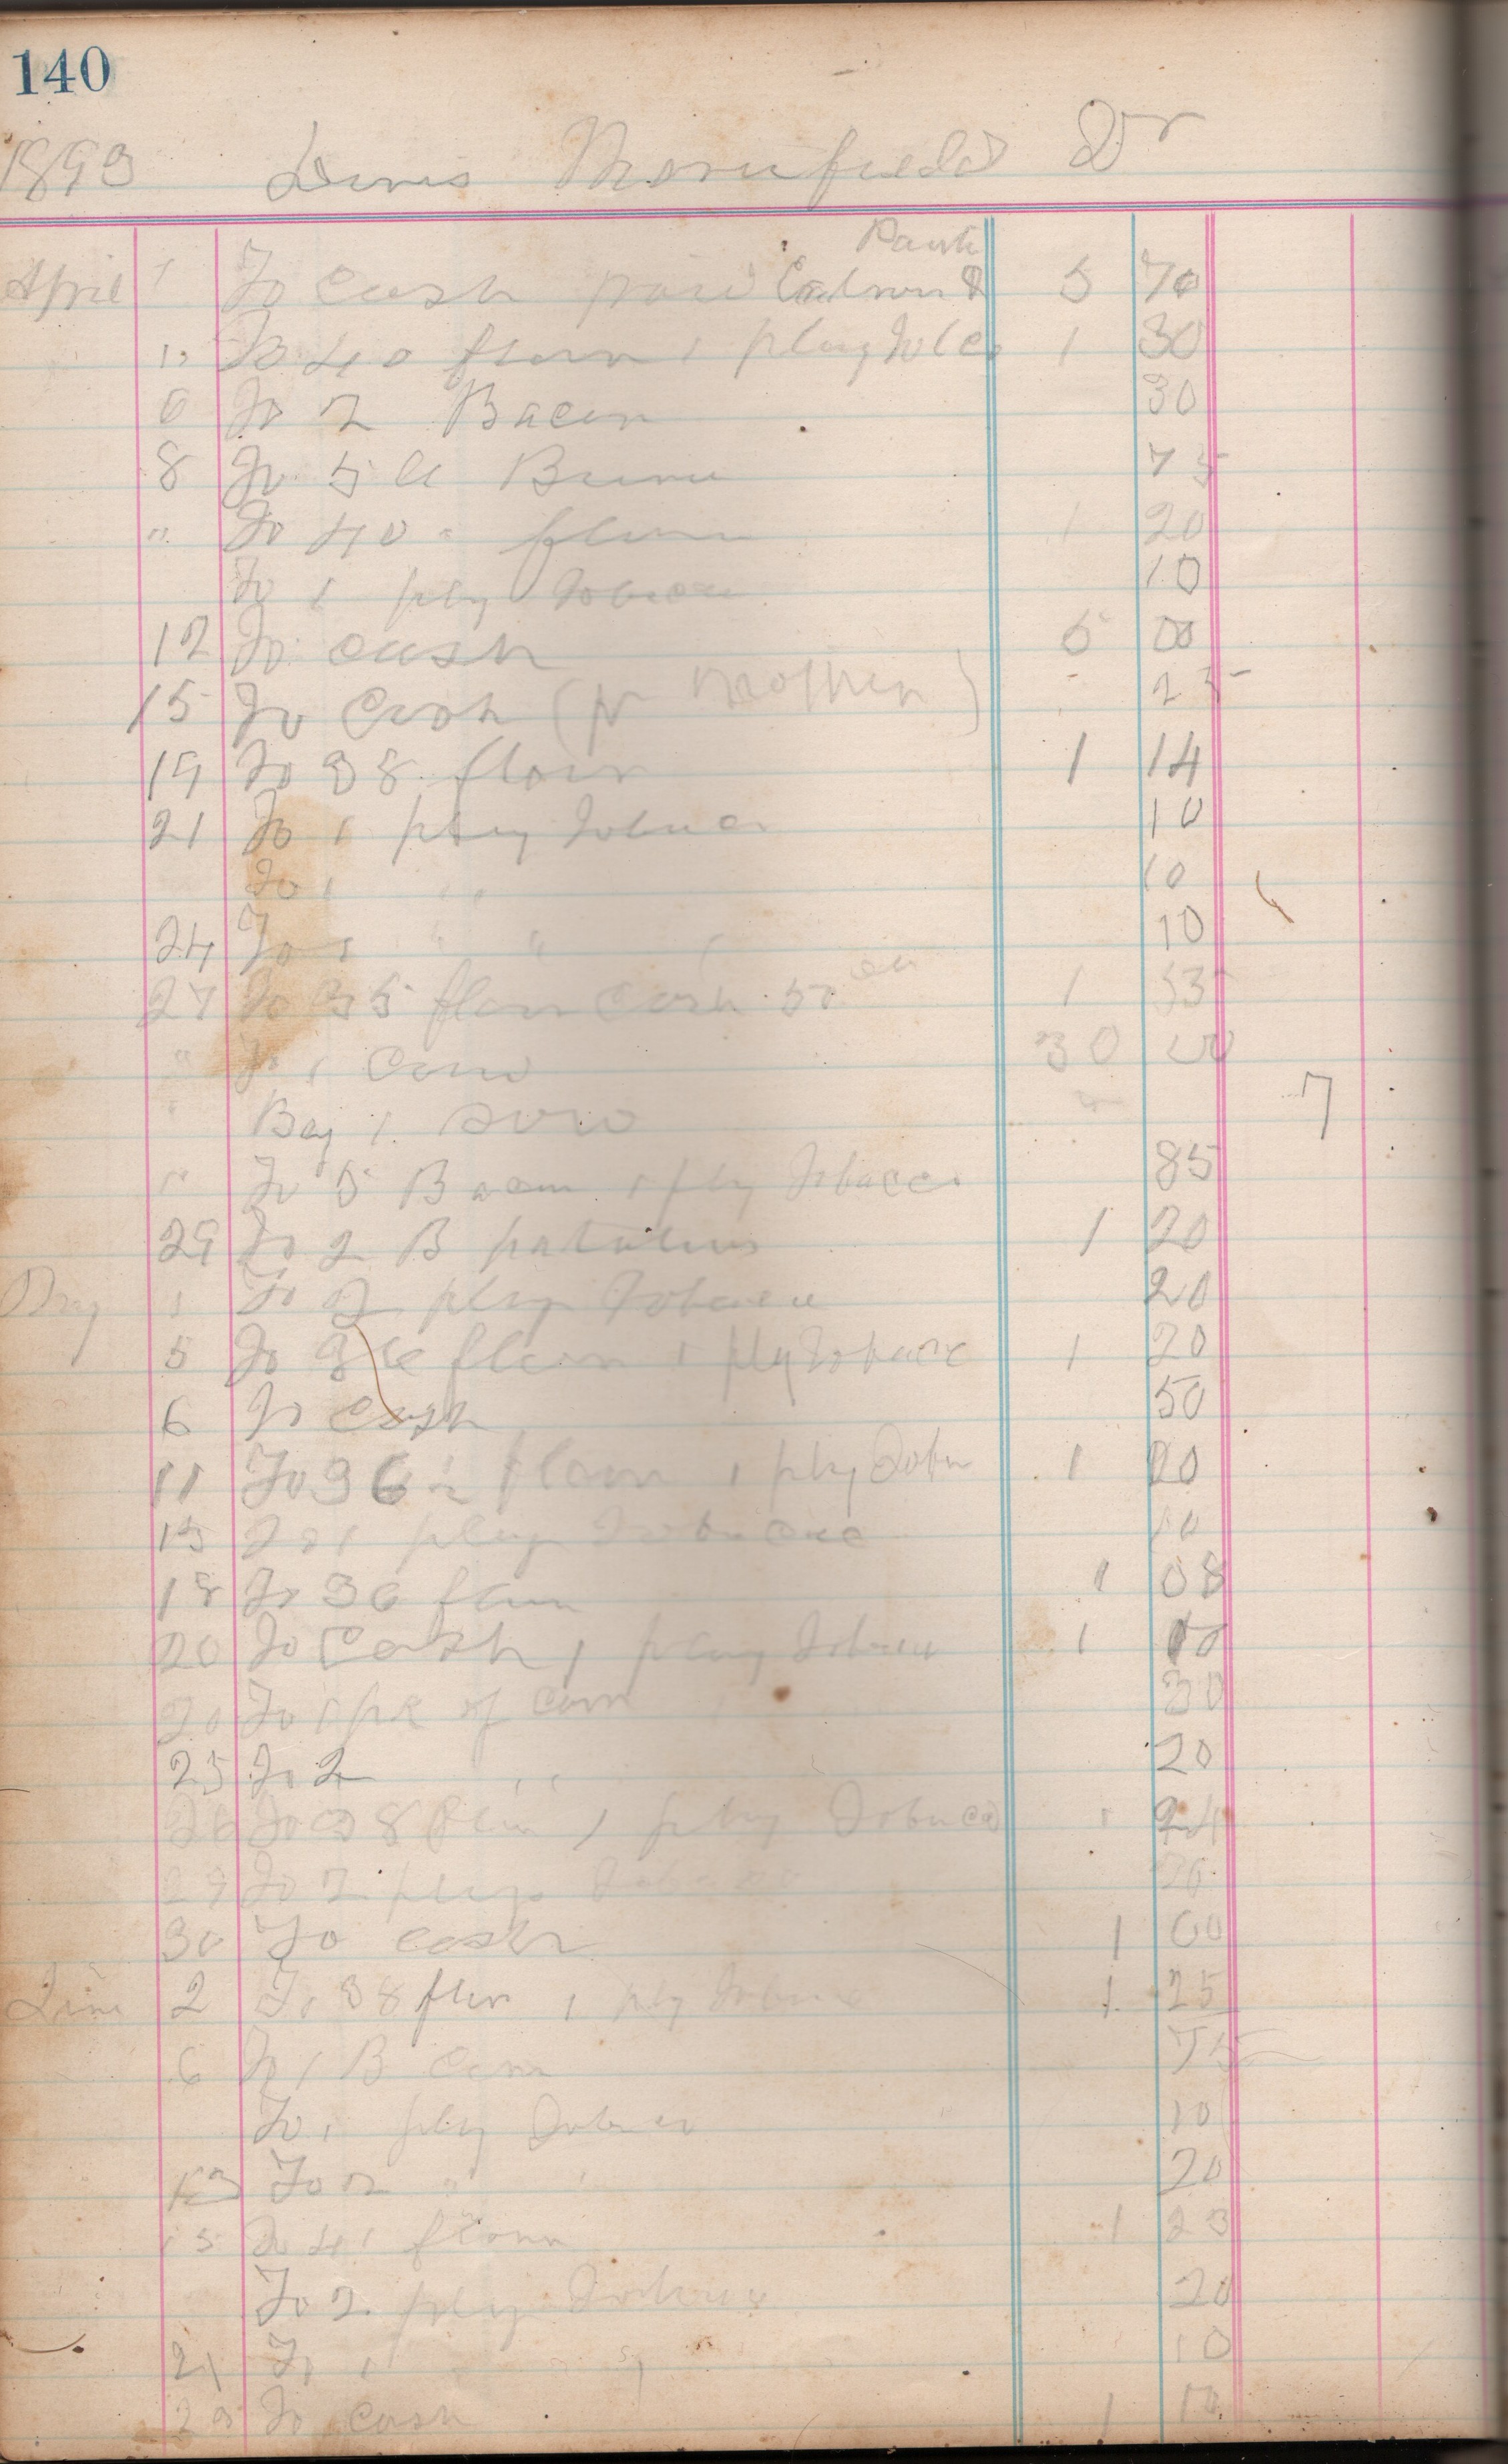 140
1893 Dr
April 1 To Cash paid 5 70
" To 40 flour 1 plug Tobco 1 30
6 To 2 Bacon 30
8 To 5 lb 75
" To 40 " flour 1 20
To 1 plug Tobacco 10
12 To cash 5 00
15 To Cash ( ) 25
19 To 38 flour 1 14
21 To 1 plug Tobaco 10
To 1 " " 10
24 To 1 " " 10
27 To 35 flour Cash 50 1 55
" To 1 Cow 30 00
" Bay 1 sow
7
" To 5 Bacon 1 plug Tobacco 85
29 To 2 B 1 20
May 1 To 2 plugs Tobacco 20
5 To 36 flour 1 plug Tobacco 1 20
6 To Cash 50
11 To 36 flour 1 plug Toba 1 20
15 To 1 plug Tobacco 10
18 To 36 flour 1 08
20 To Cash 1 plug Tobacco 1 10
20 To 1 pk of corn 30
25 To 2 " 20
26 To 38 flour 1 plug Tobacco 1 24
To 2 plugs Tobacco 20
30 To cash 1 00
June 2 To 38 flour 1 plug Tobacco 1 25
6 To 1 B Corn 75
To 1 plug Tobaco 10
13 To 2 " " 20
15 To 41 flour 1 23
To 2 plugs Tobacco 20
21 To 1 " 10
To cash 1 10